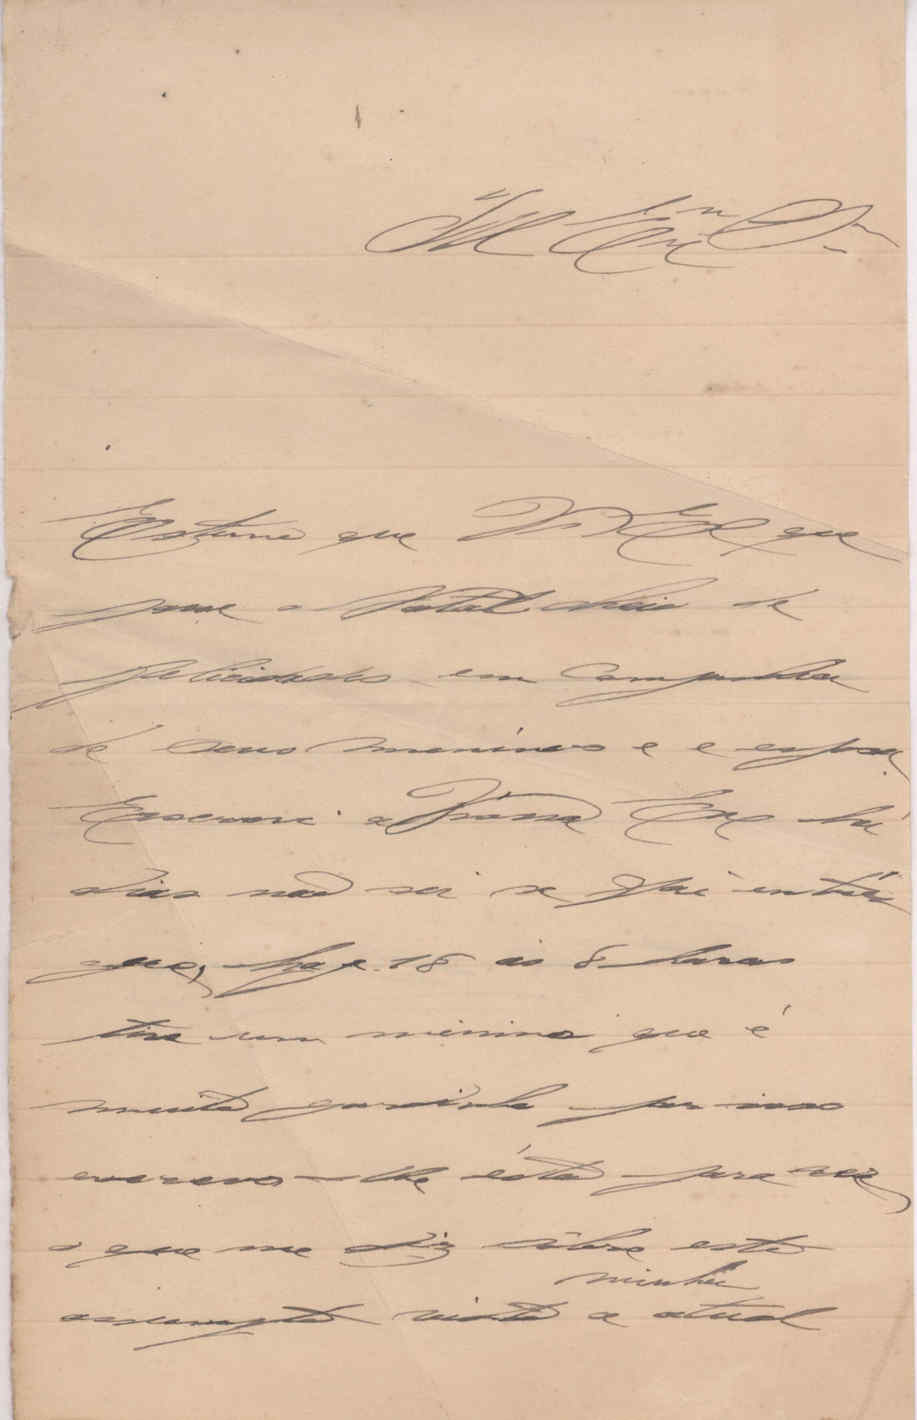 Ill Exmo Snr
Estimo que V Exc que
passe o Natal cheio de
felicidades em companhia
de seus meninos e e esposa,
Escrevi a Vossa Exc há
dias não sei se foi entre
gue, hoje 18 as 8 horas
tive um menino que é
muito gordinho por isso
escrevo-lhe ésta para ver,
o que me diz sôbre este
assumpto visto a minha atual